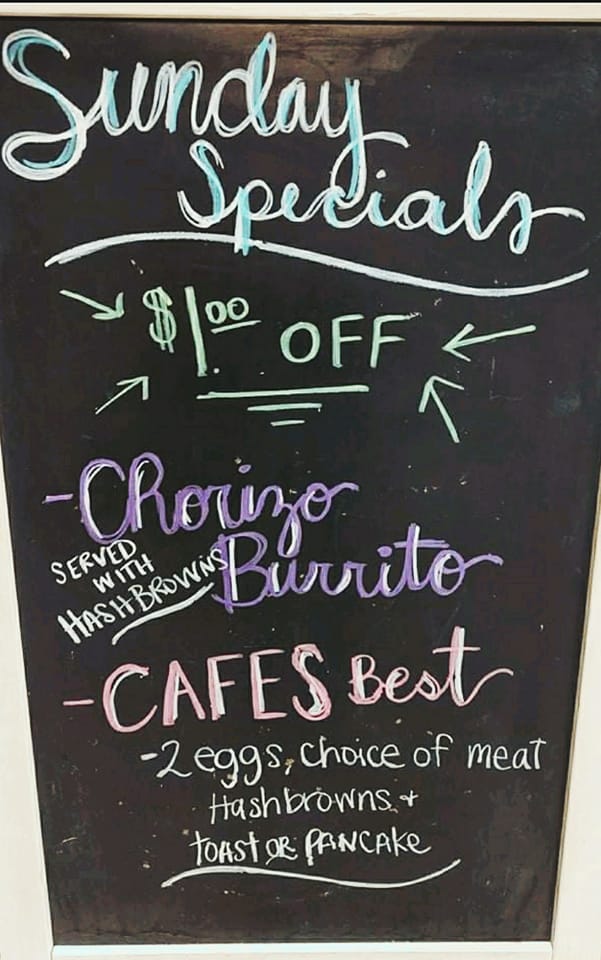 Sunday
Specials
$1.00 OFF
- Chorizo
Burrito
SERVED
WITH
HASHBROWNS
- CAFES Best
- 2 eggs, choice of meat
Hashbrowns +
TOAST OR PANCAKe